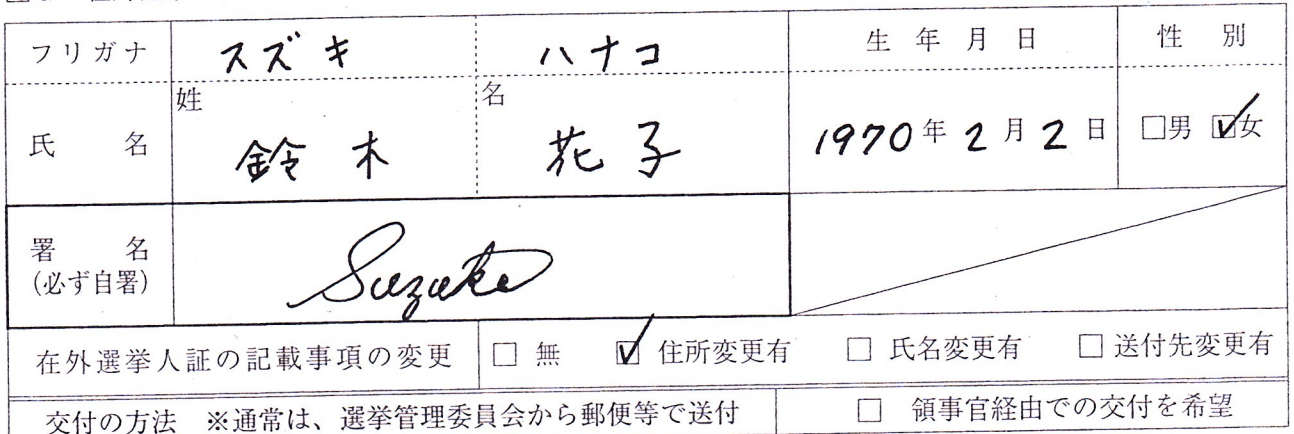 フリガナ スズキ ハナコ 生年月日 性別
氏名 姓 鈴木 名 花子 1970年2月2日 □男 ☑女
署名 Suzuki
(必ず自署)
在外選挙人証の記載事項の変更 □ 無 ☑ 住所変更有 □ 氏名変更有 □ 送付先変更有
交付の方法 ※通常は、選挙管理委員会から郵便等で送付 □ 領事官経由での交付を希望